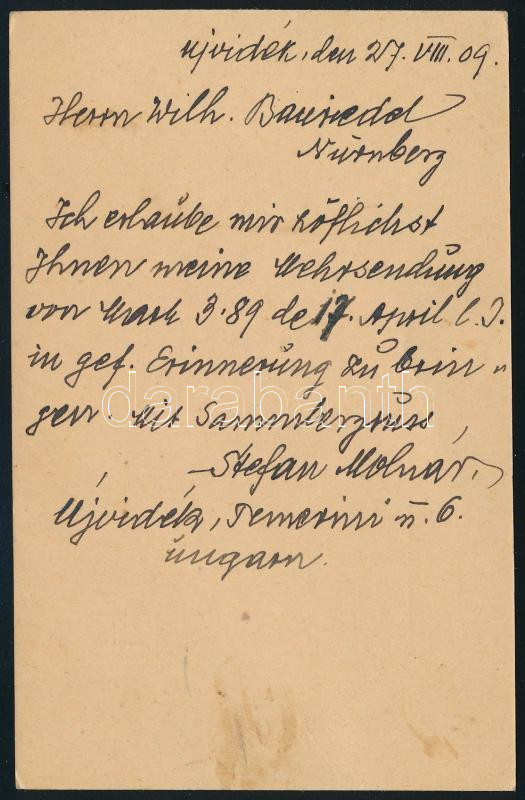 Ujvidék, den 27. VIII. 09.
Herrn Wilh. Bauriedel
Nürnberg
Ich erlaube mir höflichst
Ihnen meine Mehrsendung
von Mark 3.89 de 17. April l. J.
in gef. Erinnerung zu brin-
gen Mit Sammlergruss
darabanth
Stefan Molnár,
Újvidék, Temerini u. 6.
Ungarn.